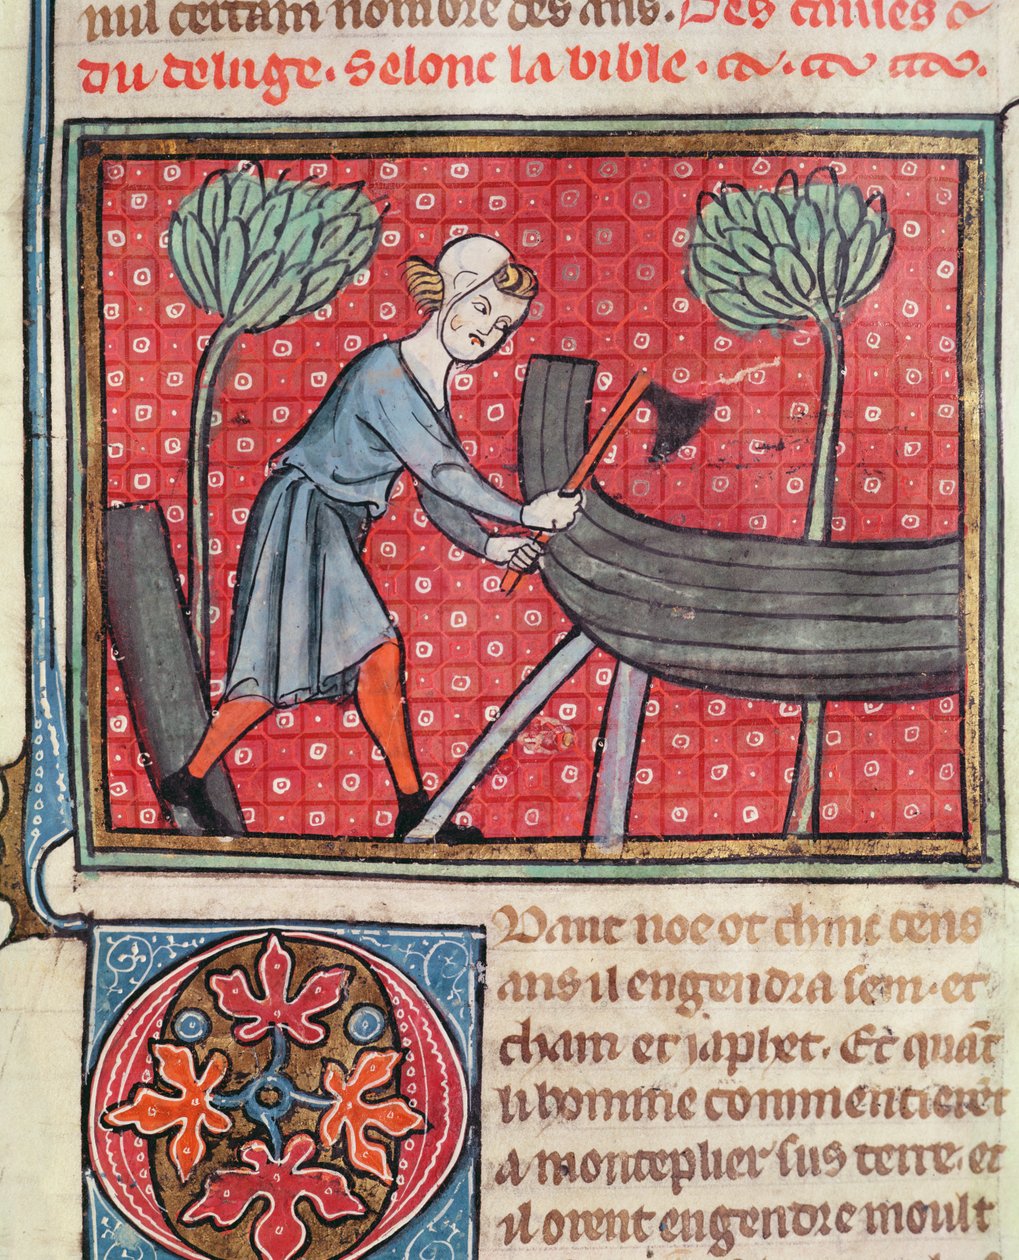 nul certam nombre des ans. Des causes
du deluge. Selonc la bible.
Uant noe ot chinc cens
ans il engendra sem. et
cham et japhet. Et quāt
li homme commencierēt
a monteplier sus terre. et
il orent engendre moult